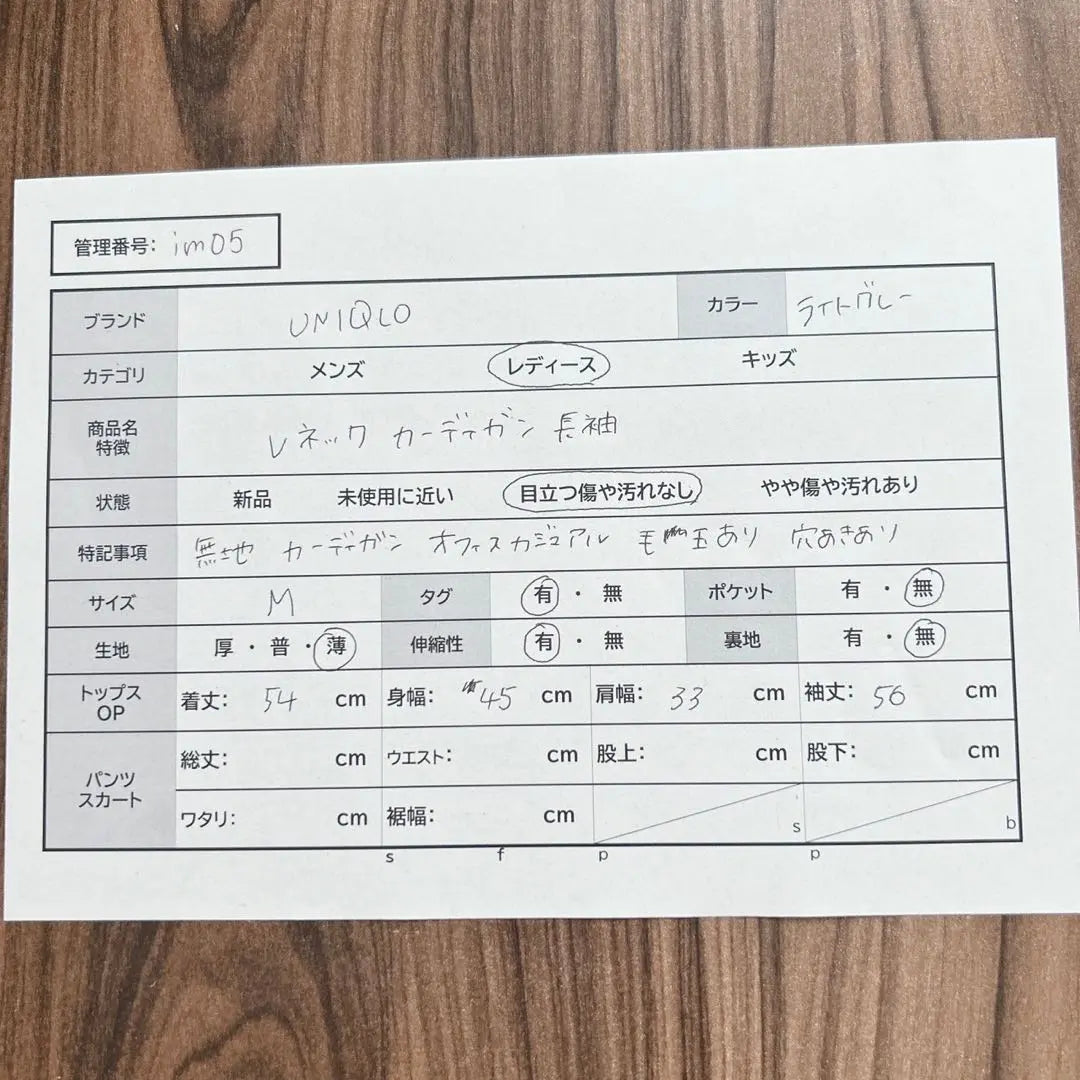 管理番号: im05
ブランド UNIQLO カラー ライトグレー
カテゴリ メンズ レディース キッズ
商品名 特徴 Vネック カーディガン 長袖
状態 新品 未使用に近い 目立つ傷や汚れなし やや傷や汚れあり
特記事項 無地 カーディガン オフィスカジュアル 毛玉あり 穴あきあり
サイズ M タグ 有・無 ポケット 有・無
生地 厚・普・薄 伸縮性 有・無 裏地 有・無
トップス OP 着丈: 54 cm 身幅: 45 cm 肩幅: 33 cm 袖丈: 56 cm
パンツ スカート 総丈: cm ウエスト: cm 股上: cm 股下: cm
ワタリ: cm 裾幅: cm s b
s f p p